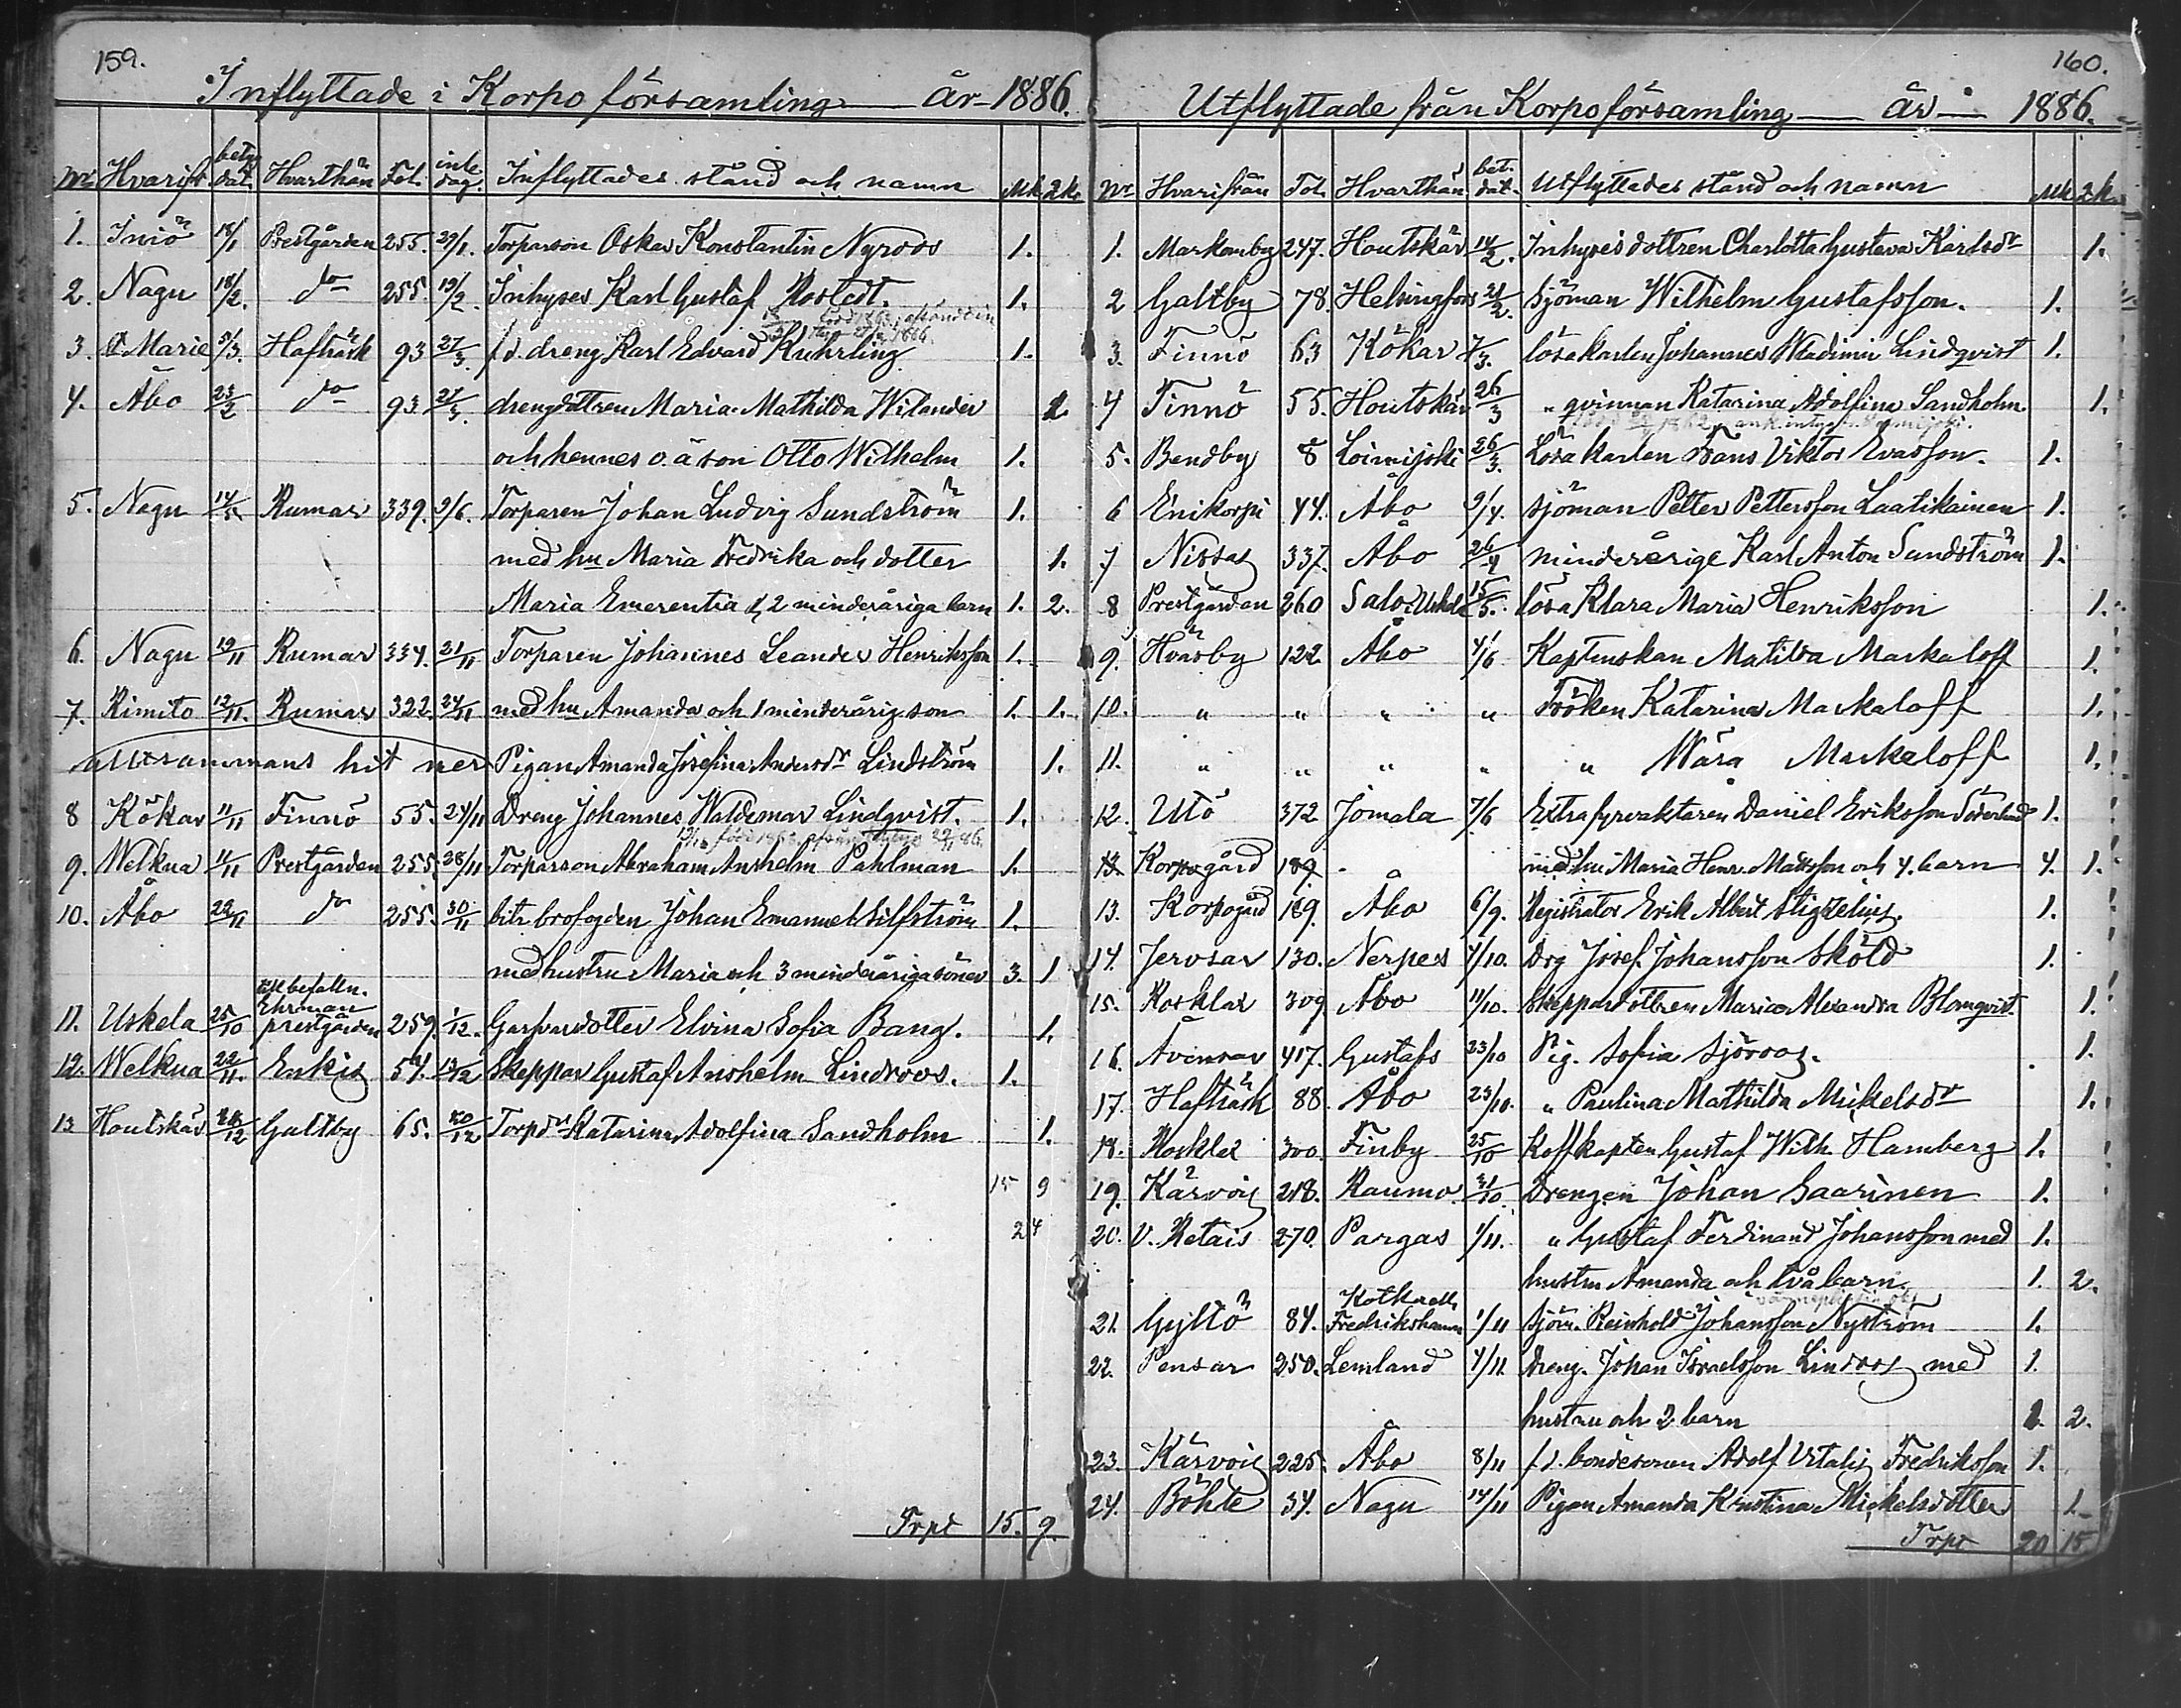 159.
Inflyttade i Korpo församling år 1886.
Nr Hvarifr betyg dat. Hvarthän Fol. inle dag. Inflyttades stånd och namn Mk 2k.
1. Iniö 18/1 Prestgården 255. 29/1. Torparson Oskar Konstantin Nyroos 1.
2. Nagu 18/2. do 255. 19/2. Inhyses Karl Gustaf Rostedt. 1.
3. St Marie 5/3. Hafträsk 93 27/3. f.d. dreng Karl Edvard Kuhrling 1.
4. Åbo 23/2 do 93 27/3. drengdottren Maria Mathilda Wilander 1.
och hennes o.ä son Otto Wilhelm 1.
5. Nagu 14/5 Rumar 339. 9/6. Torparen Johan Ludvig Sundström 1.
med hu Maria Fredrika och dotter 1.
Maria Emerentia 2 minderåriga barn 1. 2.
6. Nagu 19/11 Rumar 334. 21/11 Torparen Johannes Leander Henriksson 1.
7. Rimito 12/11. Rumar 322. 24/11 med hu Amanda och 1 minderårig son 1. 1.
hit ner Pigan Amanda Josefina Andersdr Lindström 1.
8 Kökar 11/11 Finnö 55. 24/11 Dreng Johannes Waldemar Lindqvist. 1.
9. Welkua 11/11 Prestgården 255. 28/11 Torparson Abraham Anshelm Pahlman 1.
10. Åbo 22/11 do 255. 30/11 bitr. brofogden Johan Emanuel Silfström 1.
med hustru Maria och 3 minderåriga söner 3. 1
befalln. Ehrman
11. Uskela 25/10 prestgården 259. 1/12. Garfvardotter Elvina Sofia Bang. 1.
12. Welkua 22/11. Enkis 54. 13/12 Skeppar Gustaf Anshelm Lindroos. 1.
13 Houtskär 18/12 Galtby 65. 20/12 Torpdr Katarina Adolfina Sandholm 1.
15 9
24
Trpt 15. 9.
160.
Utflyttade från Korpo församling år 1886.
Nr Hvarifrån Fol. Hvarthän bet. dat. Utflyttades stånd och namn Mk 2k.
1. Markomby 247. Houtskär 14/2. Inhysesdottren Charlotta Gustava Karlsdr 1.
2 Galtby 78. Helsingfors 21/2. Sjöman Wilhelm Gustafsson. 1.
3. Finnö 63 Kökar 7/3. lösa karlen Johannes Wladimir Lindqvist 1.
4 Finnö 55. Houtskär 26/3 " qvinnan Katarina Adolfina Sandholm 1.
5. Bendby 8 Loimijoki 26/3. Lösa karlen Frans Viktor Evasson. 1.
6 Enikorpi 44. Åbo 9/4. Sjöman Petter Pettersson Laatikainen 1.
7 Nissas 337. Åbo 26/4 minderårige Karl Anton Sundström 1.
8 Prestgården 260 Salo i Uskela 15/5. lösa Klara Maria Henriksson 1.
9. Hväsby 122 Åbo 4/6 Kaptenskan Matilda Markaloff 1.
10. " " " " Fröken Katarina Markaloff 1.
11. " " " " " Wära Markaloff 1.
12. Utö 372 Jomala 7/6 Extra fyrvaktaren Daniel Eriksson Söderlund 1.
13 Korpogård 189. med hu Maria Henr. Mattsson och 4. barn 4. 1.
13. Korpogård 189. Åbo 6/9. Registrator Erik Albert Stigzelius. 1.
14. Jervsar 130. Nerpes 4/10. Drg Josef Johansson Sköld 1.
15. Rosklax 309 Åbo 11/10. Skeppardottren Maria Alexandra Blomqvist. 1.
16. Åvensar 417. Gustafs 23/10 Pig. Sofia Sjöroos. 1.
17. Hafträsk 88. Åbo 23/10. " Paulina Mathilda Mikelsdr 1.
18. Rosklax 300. Finby 25/10 Koffkapten Gustaf Wilh. Hamberg 1.
19. Kärvois 218. Raumo 31/10. Drengen Johan Saarinen 1.
20. V. Retais 270. Pargas 1/11. " Gustaf Ferdinand Johansson med 1.
hustru Amanda och två barn. 1. 2.
21. Gyltö 84. Kotka och Fredrikshamn 1/11 Sjöm. Reinhold Johansson Nyström 1.
22. Pensar 250. Lemland 4/11 Dreng. Johan Israelsson Lindros med 1.
hustru och 2 barn 2.
23. Kärvois 225. Åbo 8/11 f.d. bondesonen Adolf Vitalis Fredriksson 1.
24. Böhle 34. Nagu 14/11 Pigan Amanda Kristina Mickelsdotter 1.
Trpt 20 15.